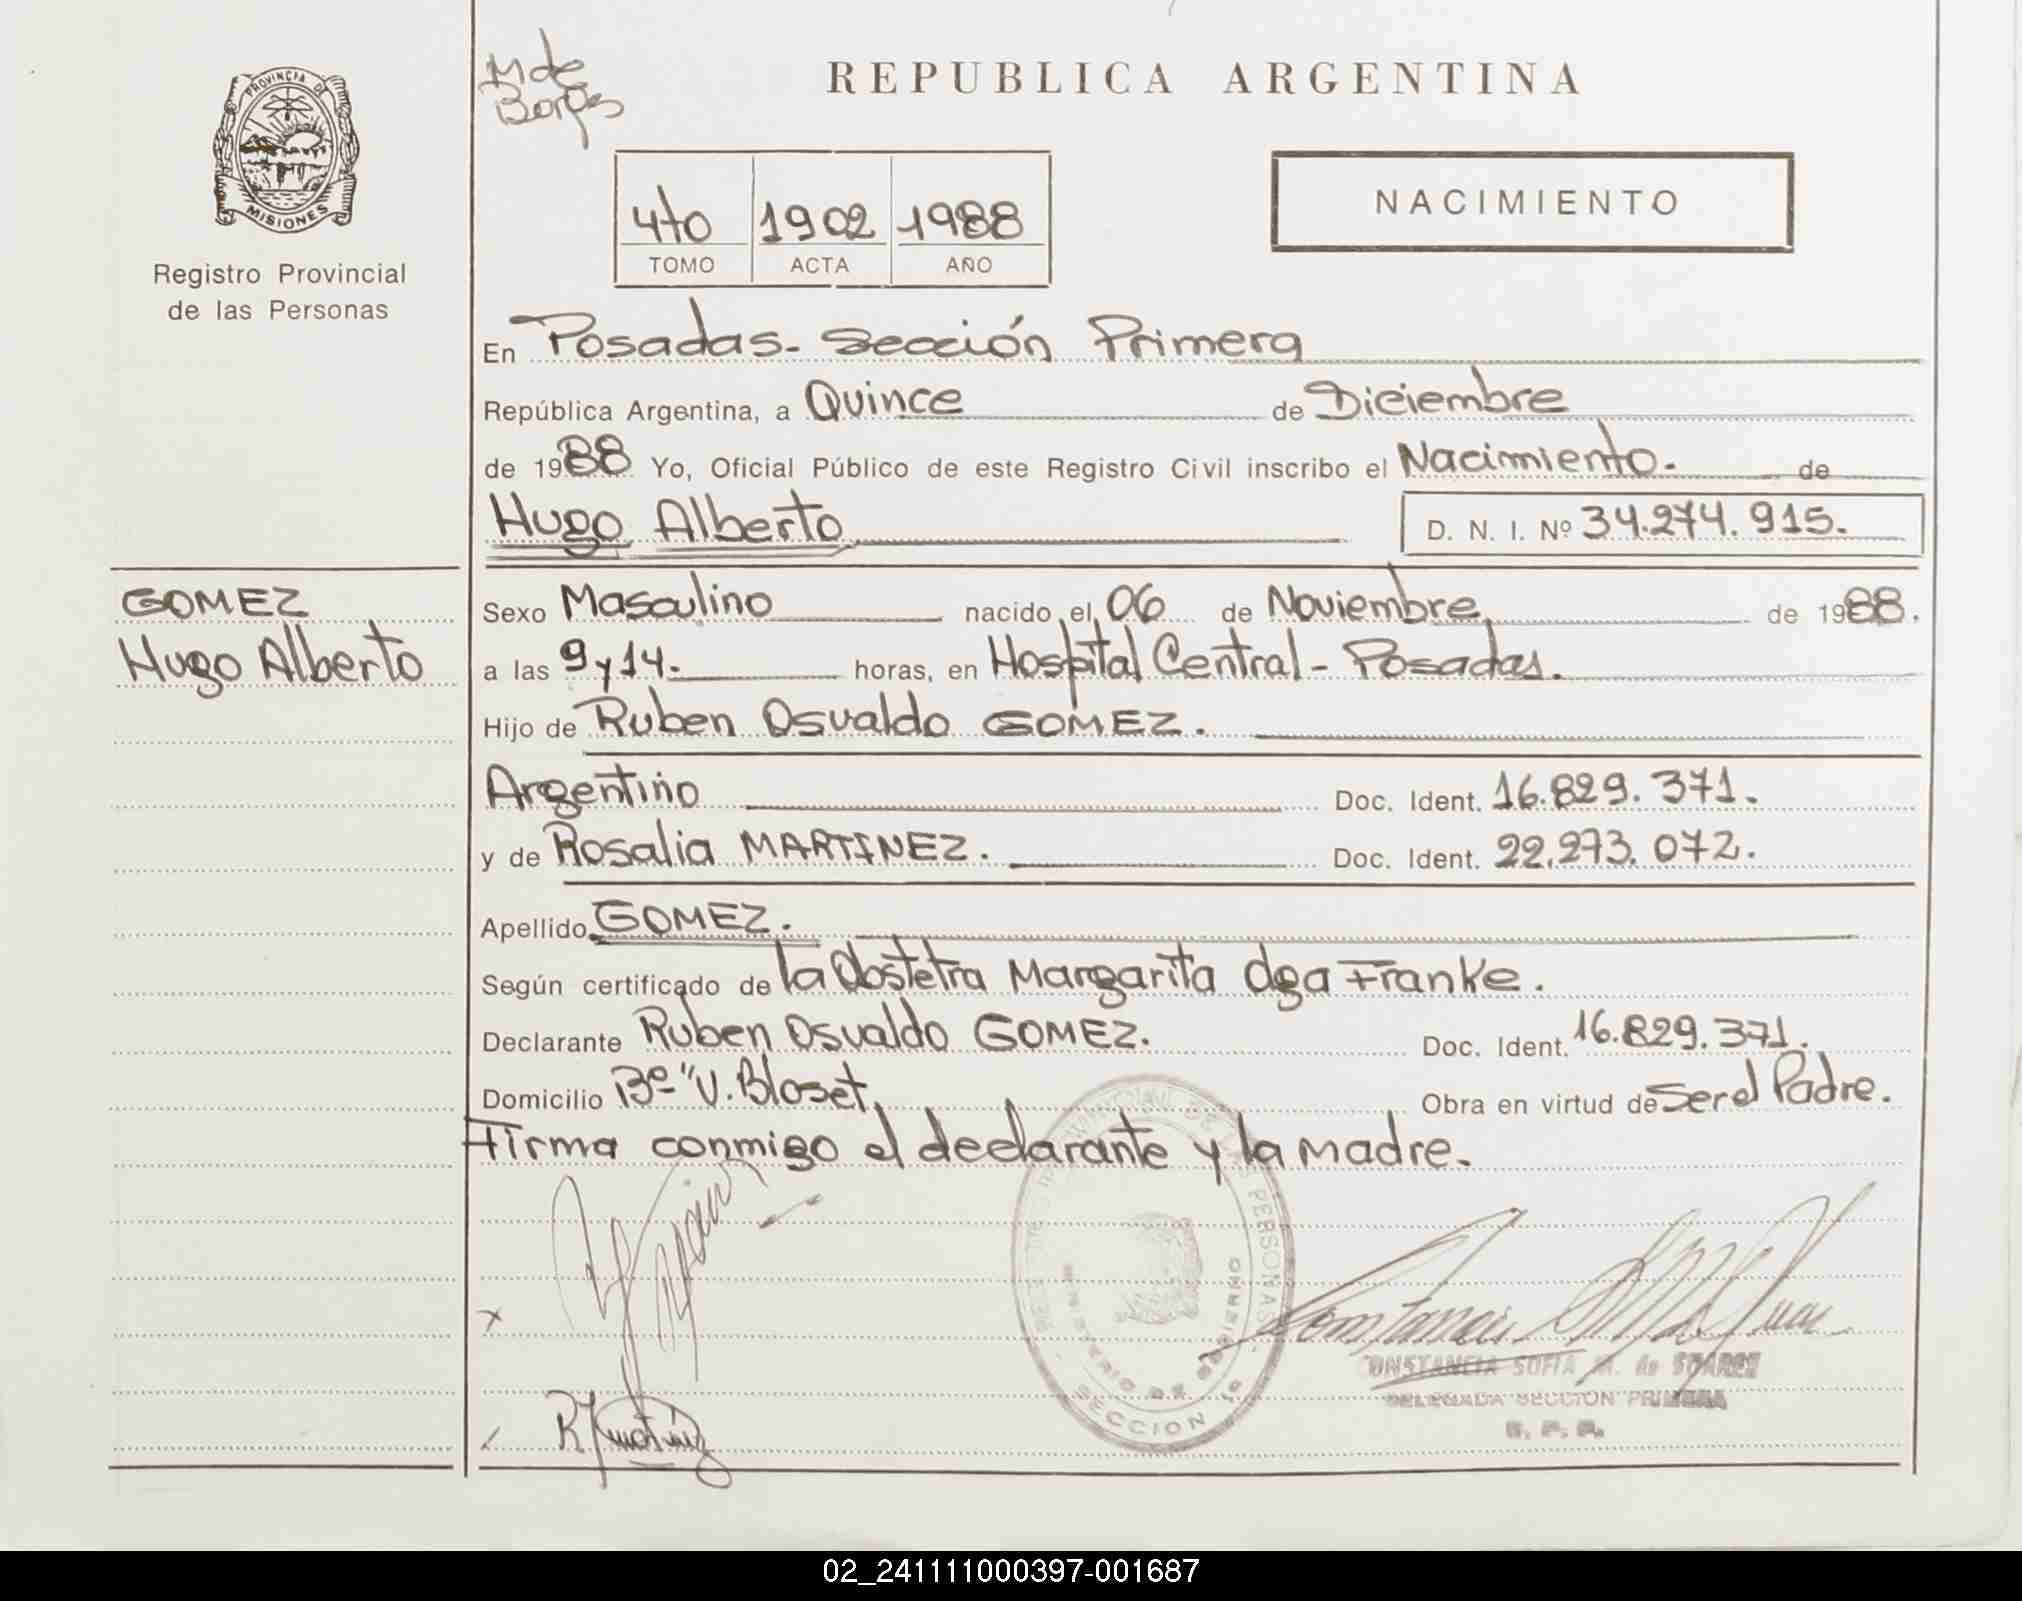 PROVINCIA DE
MISIONES
Registro Provincial
de las Personas
GOMEZ
Hugo Alberto
M de
Borges
REPUBLICA ARGENTINA
4to 1902 1988
TOMO ACTA AÑO
NACIMIENTO
En Posadas - Sección Primera
República Argentina, a Quince de Diciembre
de 1988 Yo, Oficial Público de este Registro Civil inscribo el Nacimiento. de
Hugo Alberto D. N. I. Nº 34.274.915.
Sexo Masculino nacido el 06 de Noviembre de 1988.
a las 9 y 14. horas, en Hospital Central - Posadas.
Hijo de Ruben Osvaldo GOMEZ.
Argentino Doc. Ident. 16.829.371.
y de Rosalia MARTINEZ. Doc. Ident. 22.273.072.
Apellido GOMEZ.
Según certificado de la Obstetra Margarita Olga Franke.
Declarante Ruben Osvaldo GOMEZ. Doc. Ident. 16.829.371.
Domicilio Bº "V. Bloset, Obra en virtud de Ser el Padre.
Firma conmigo el declarante y la madre.
PROVINCIAL DE LAS PERSONAS
MINISTERIO DE GOBIERNO
SECCION 1º
CONSTANCIA SOFIA M. de SUAREZ
DELEGADA SECCION PRIMERA
R. P. P.
02_241111000397-001687